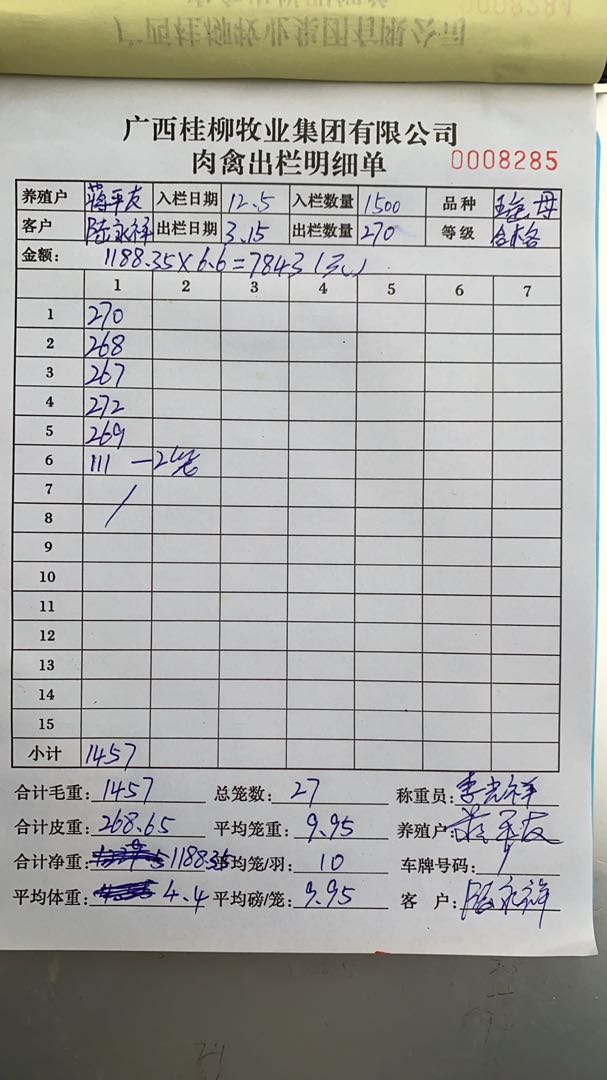 0008284
广西桂柳牧业集团有限公司
广西桂柳牧业集团有限公司
肉禽出栏明细单 0008285
养殖户 蒋平友 入栏日期 12.5 入栏数量 1500 品种 母
客户 陆永祥 出栏日期 3.15 出栏数量 270 等级 合格
金额: 1188.35×6.6=7843(元)
1 2 3 4 5 6 7
1 270
2 268
3 267
4 272
5 269
6 111 —2笼
7
8 /
9
10
11
12
13
14
15
小计 1457
合计毛重: 1457 总笼数: 27 称重员: 李光祥
合计皮重: 268.65 平均笼重: 9.95 养殖户: 蒋平友
合计净重: 1188.35 平均笼/羽: 10 车牌号码: /
平均体重: 4.4 平均磅/笼: 9.95 客 户: 陆永祥